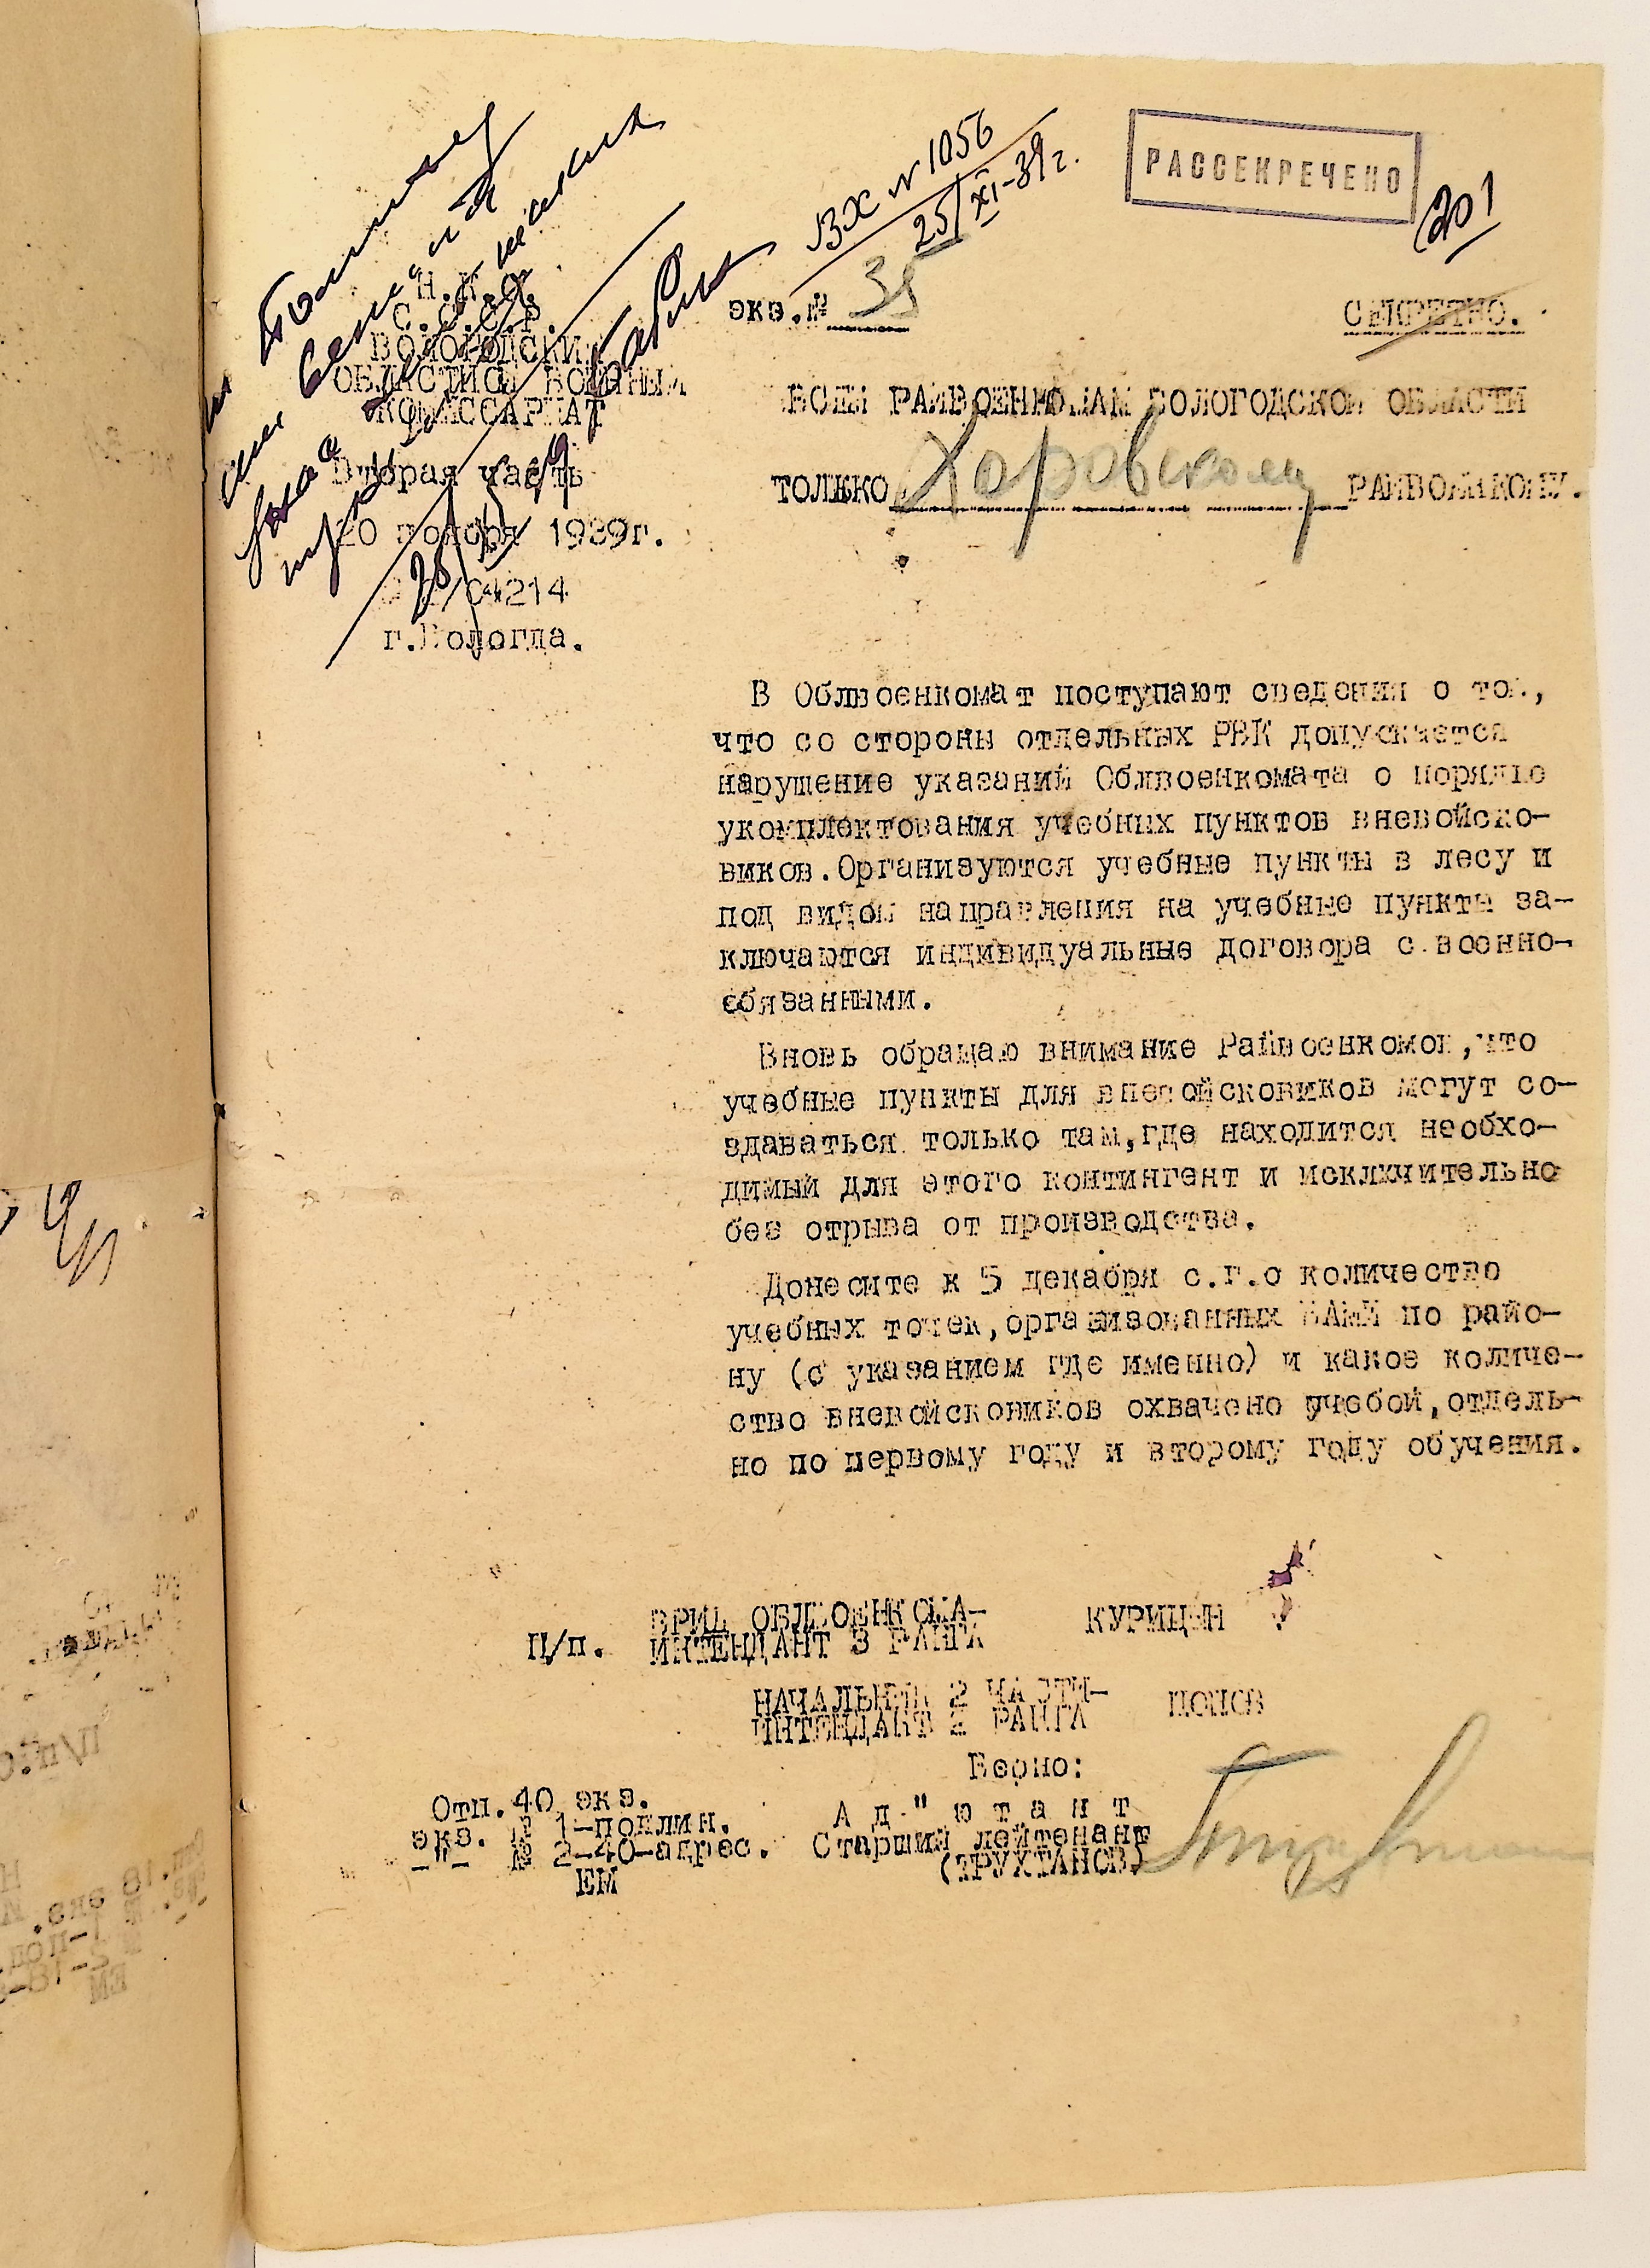 ВХ № 1056
25/XI-39г.
РАССЕКРЕЧЕНО
201
Н.К.О.
С.С.С.Р.
ВОЛОГОДСКИЙ
ОБЛАСТНОЙ ВОЕННЫЙ
КОМИССАРИАТ
Вторая часть
20 ноября 1939г.
/04214
г.Вологда.
экз.№ 35
СЕКРЕТНО.
ВСЕМ РАЙВОЕНКОМАМ ВОЛОГОДСКОЙ ОБЛАСТИ
ТОЛЬКО Харовскому РАЙВОЕНКОМУ.
В Облвоенкомат поступают сведения о том,
что со стороны отдельных РВК допускается
нарушение указаний Облвоенкомата о порядке
укомплектования учебных пунктов вневойско-
виков.Организуются учебные пункты в лесу и
под видом направления на учебные пункты за-
ключаются индивидуальные договора с военно-
обязанными.
Вновь обращаю внимание Райвоенкомов,что
учебные пункты для вневойсковиков могут со-
здаваться только там,где находится необхо-
димый для этого контингент и исключительно
без отрыва от производства.
Донесите к 5 декабря с.г.о количество
учебных точек,организованных ВАМИ по райо-
ну (с указанием где именно) и какое количе-
ство вневойсковиков охвачено учебой,отдель-
но по первому году и второму году обучения.
П/п. ВРИД ОБЛВОЕНКОМА-
ИНТЕНДАНТ 3 РАНГА КУРИЦЕН
НАЧАЛЬНИК 2 ЧАСТИ-
ИНТЕНДАНТ 2 РАНГА ПОПОВ
Верно:
Ад"ютант
Старший лейтенант
(ТРУХТАНОВ)
Отп.40 экз.
экз. № 1-подлин.
-"- № 2-40-адрес.
ЕМ